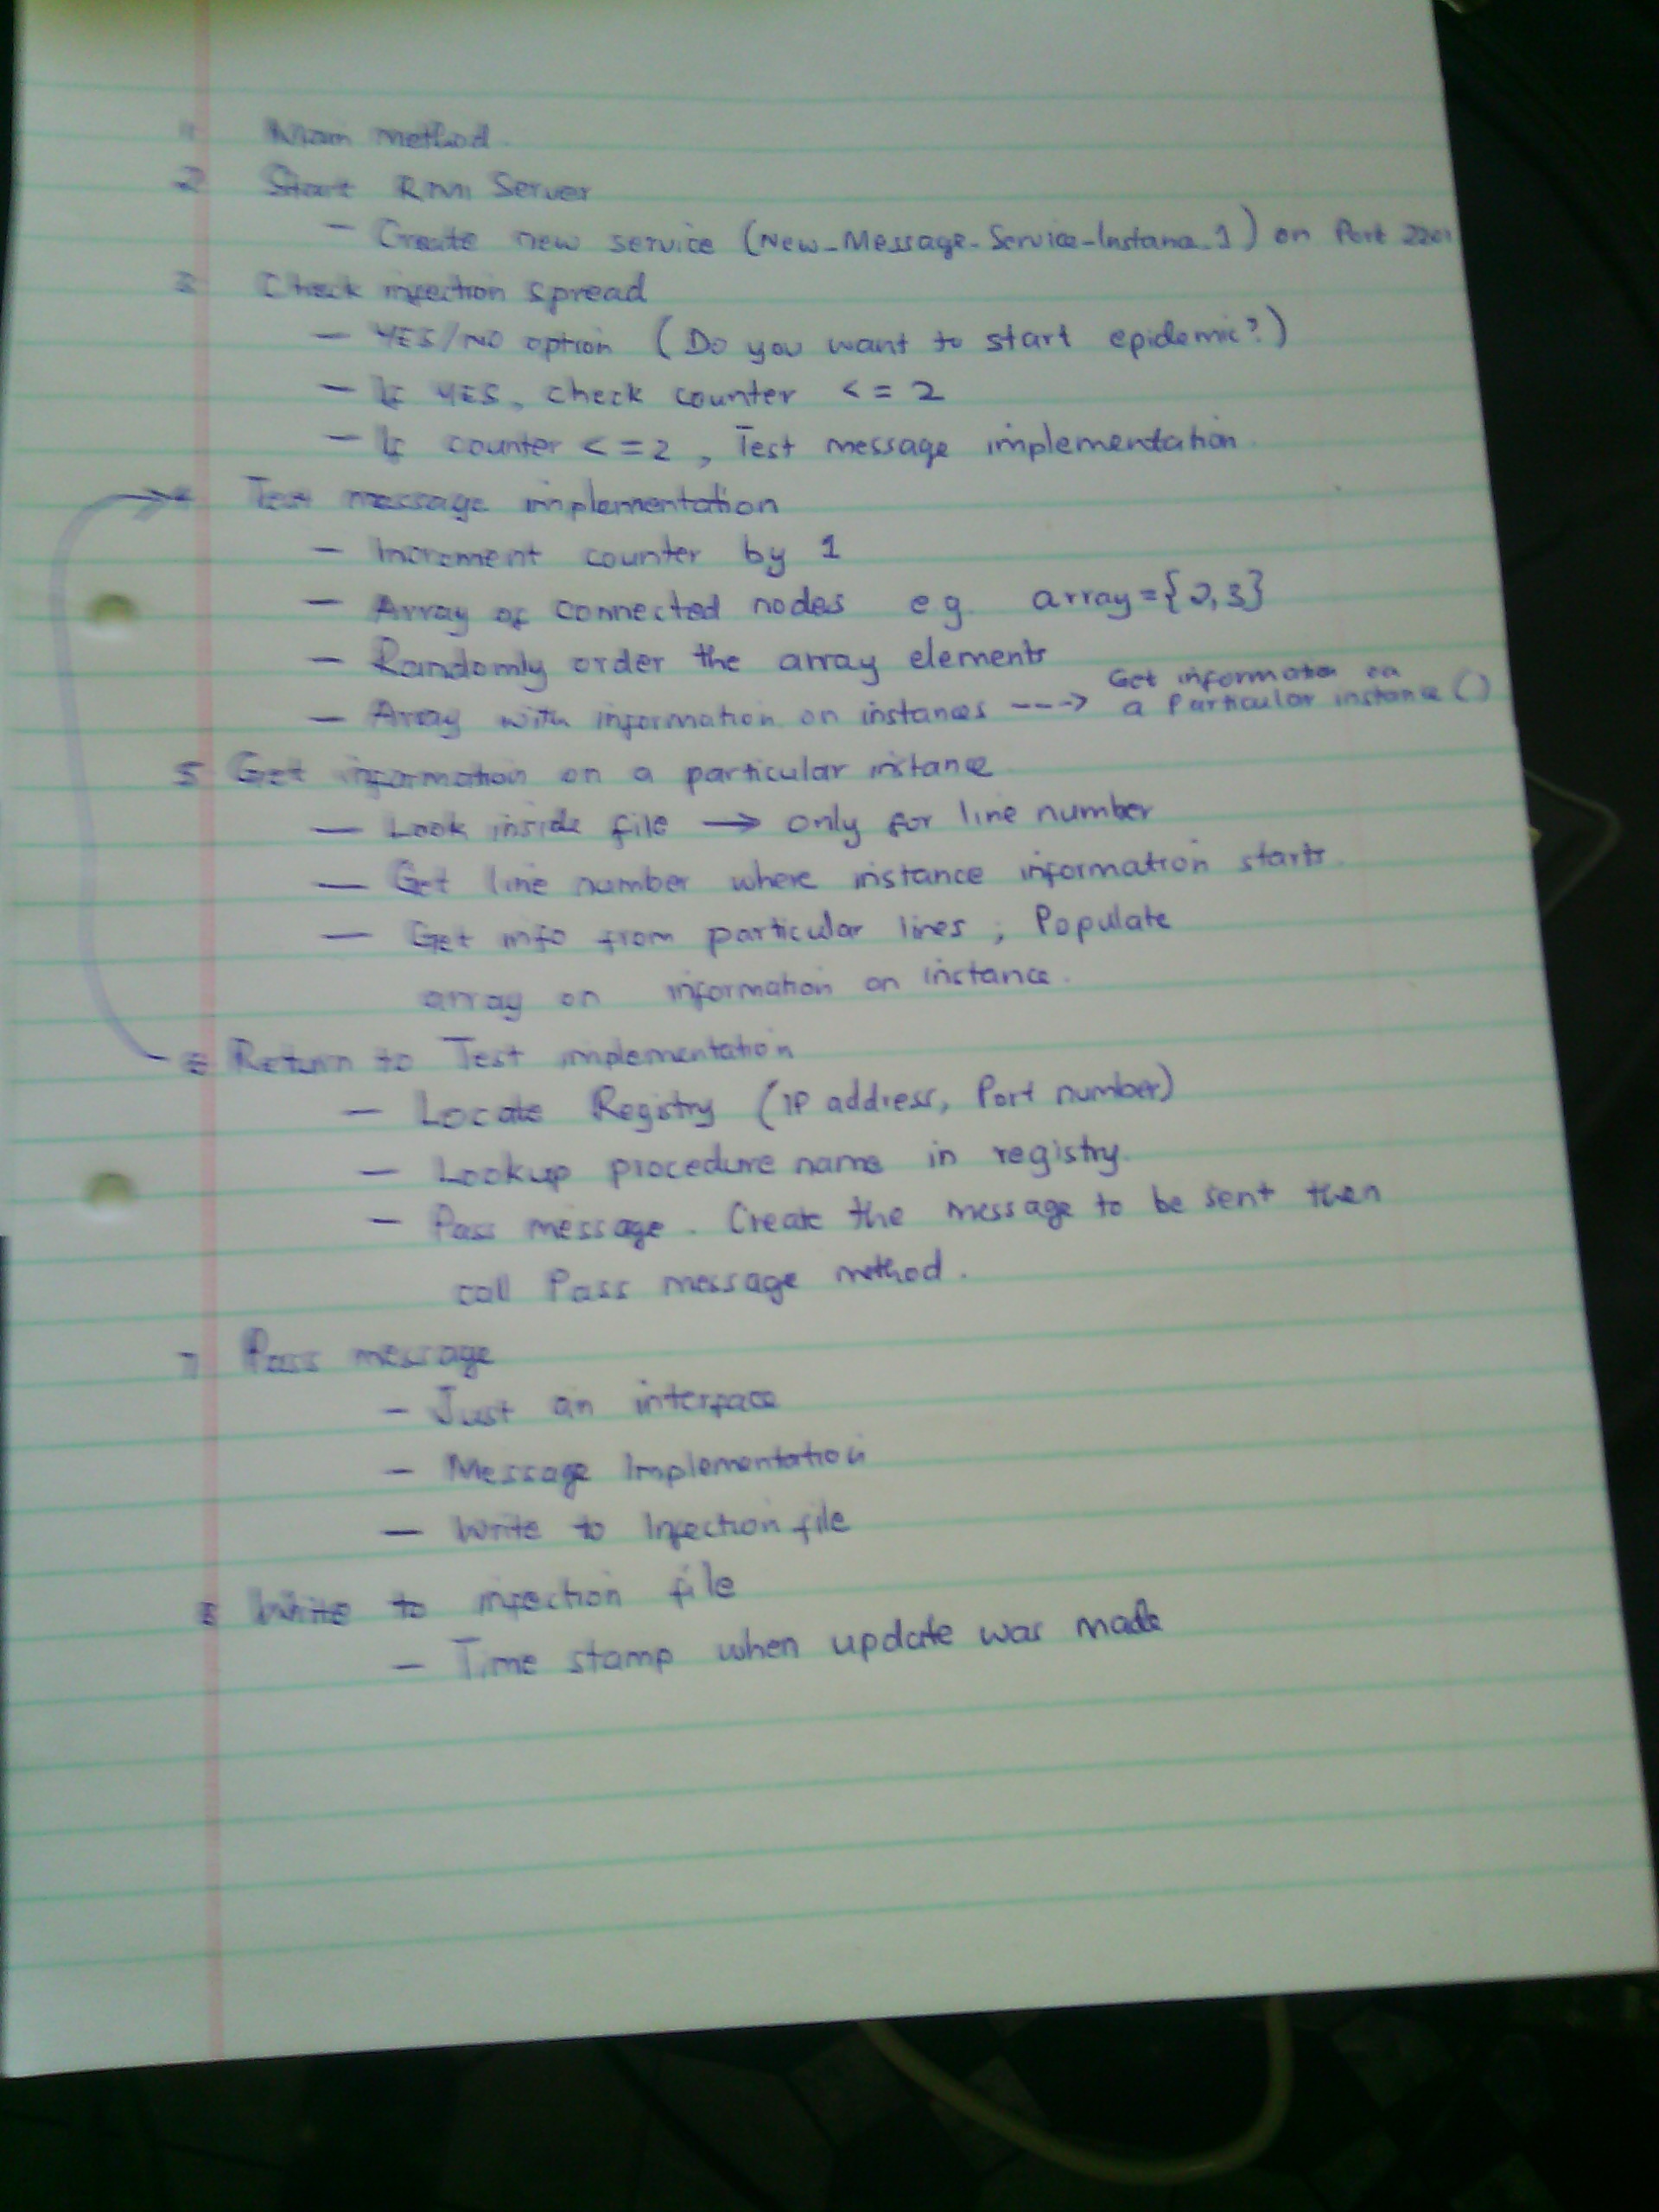 1 Main method.
2 Start RMI Server
– Create new service (New_Message_Service_Instance_1) on Port 2201
3 Check infection spread
– YES/NO option (Do you want to start epidemic?)
– If YES, check counter <= 2
– If counter <= 2, Test message implementation.
4 Test message implementation
– Increment counter by 1
– Array of connected nodes eg. array={2,3}
– Randomly order the array elements
– Array with information on instances ---> Get information on
a Particular instance()
5 Get information on a particular instance
– Look inside file → only for line number
– Get line number where instance information starts.
– Get info from particular lines; Populate
array on information on instance.
6 Return to Test implementation
– Locate Registry (IP address, Port number)
– Lookup procedure name in registry.
– Pass message. Create the message to be sent then
call Pass message method.
7 Pass message
– Just an interface
– Message Implementation
– Write to Infection file
8 Write to infection file
– Time stamp when update was made